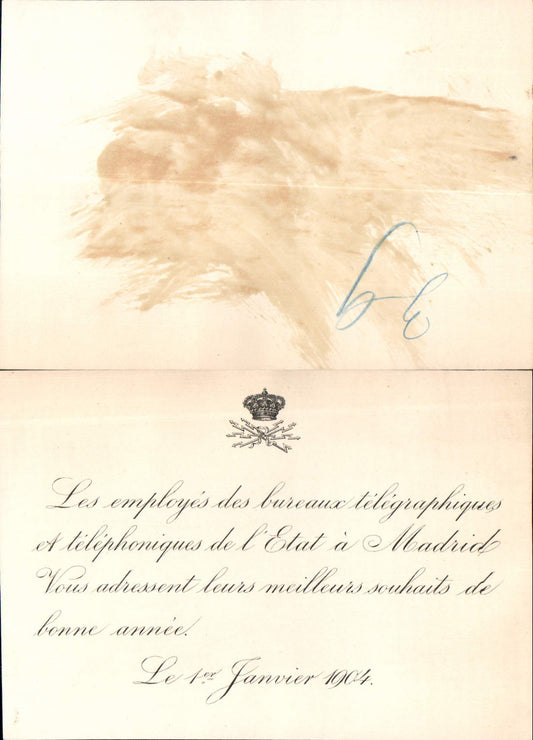 Les employés des bureaux télégraphiques
et téléphoniques de l'Etat à Madrid
Vous adressent leurs meilleurs souhaits de
bonne année.
Le 1er Janvier 1904.